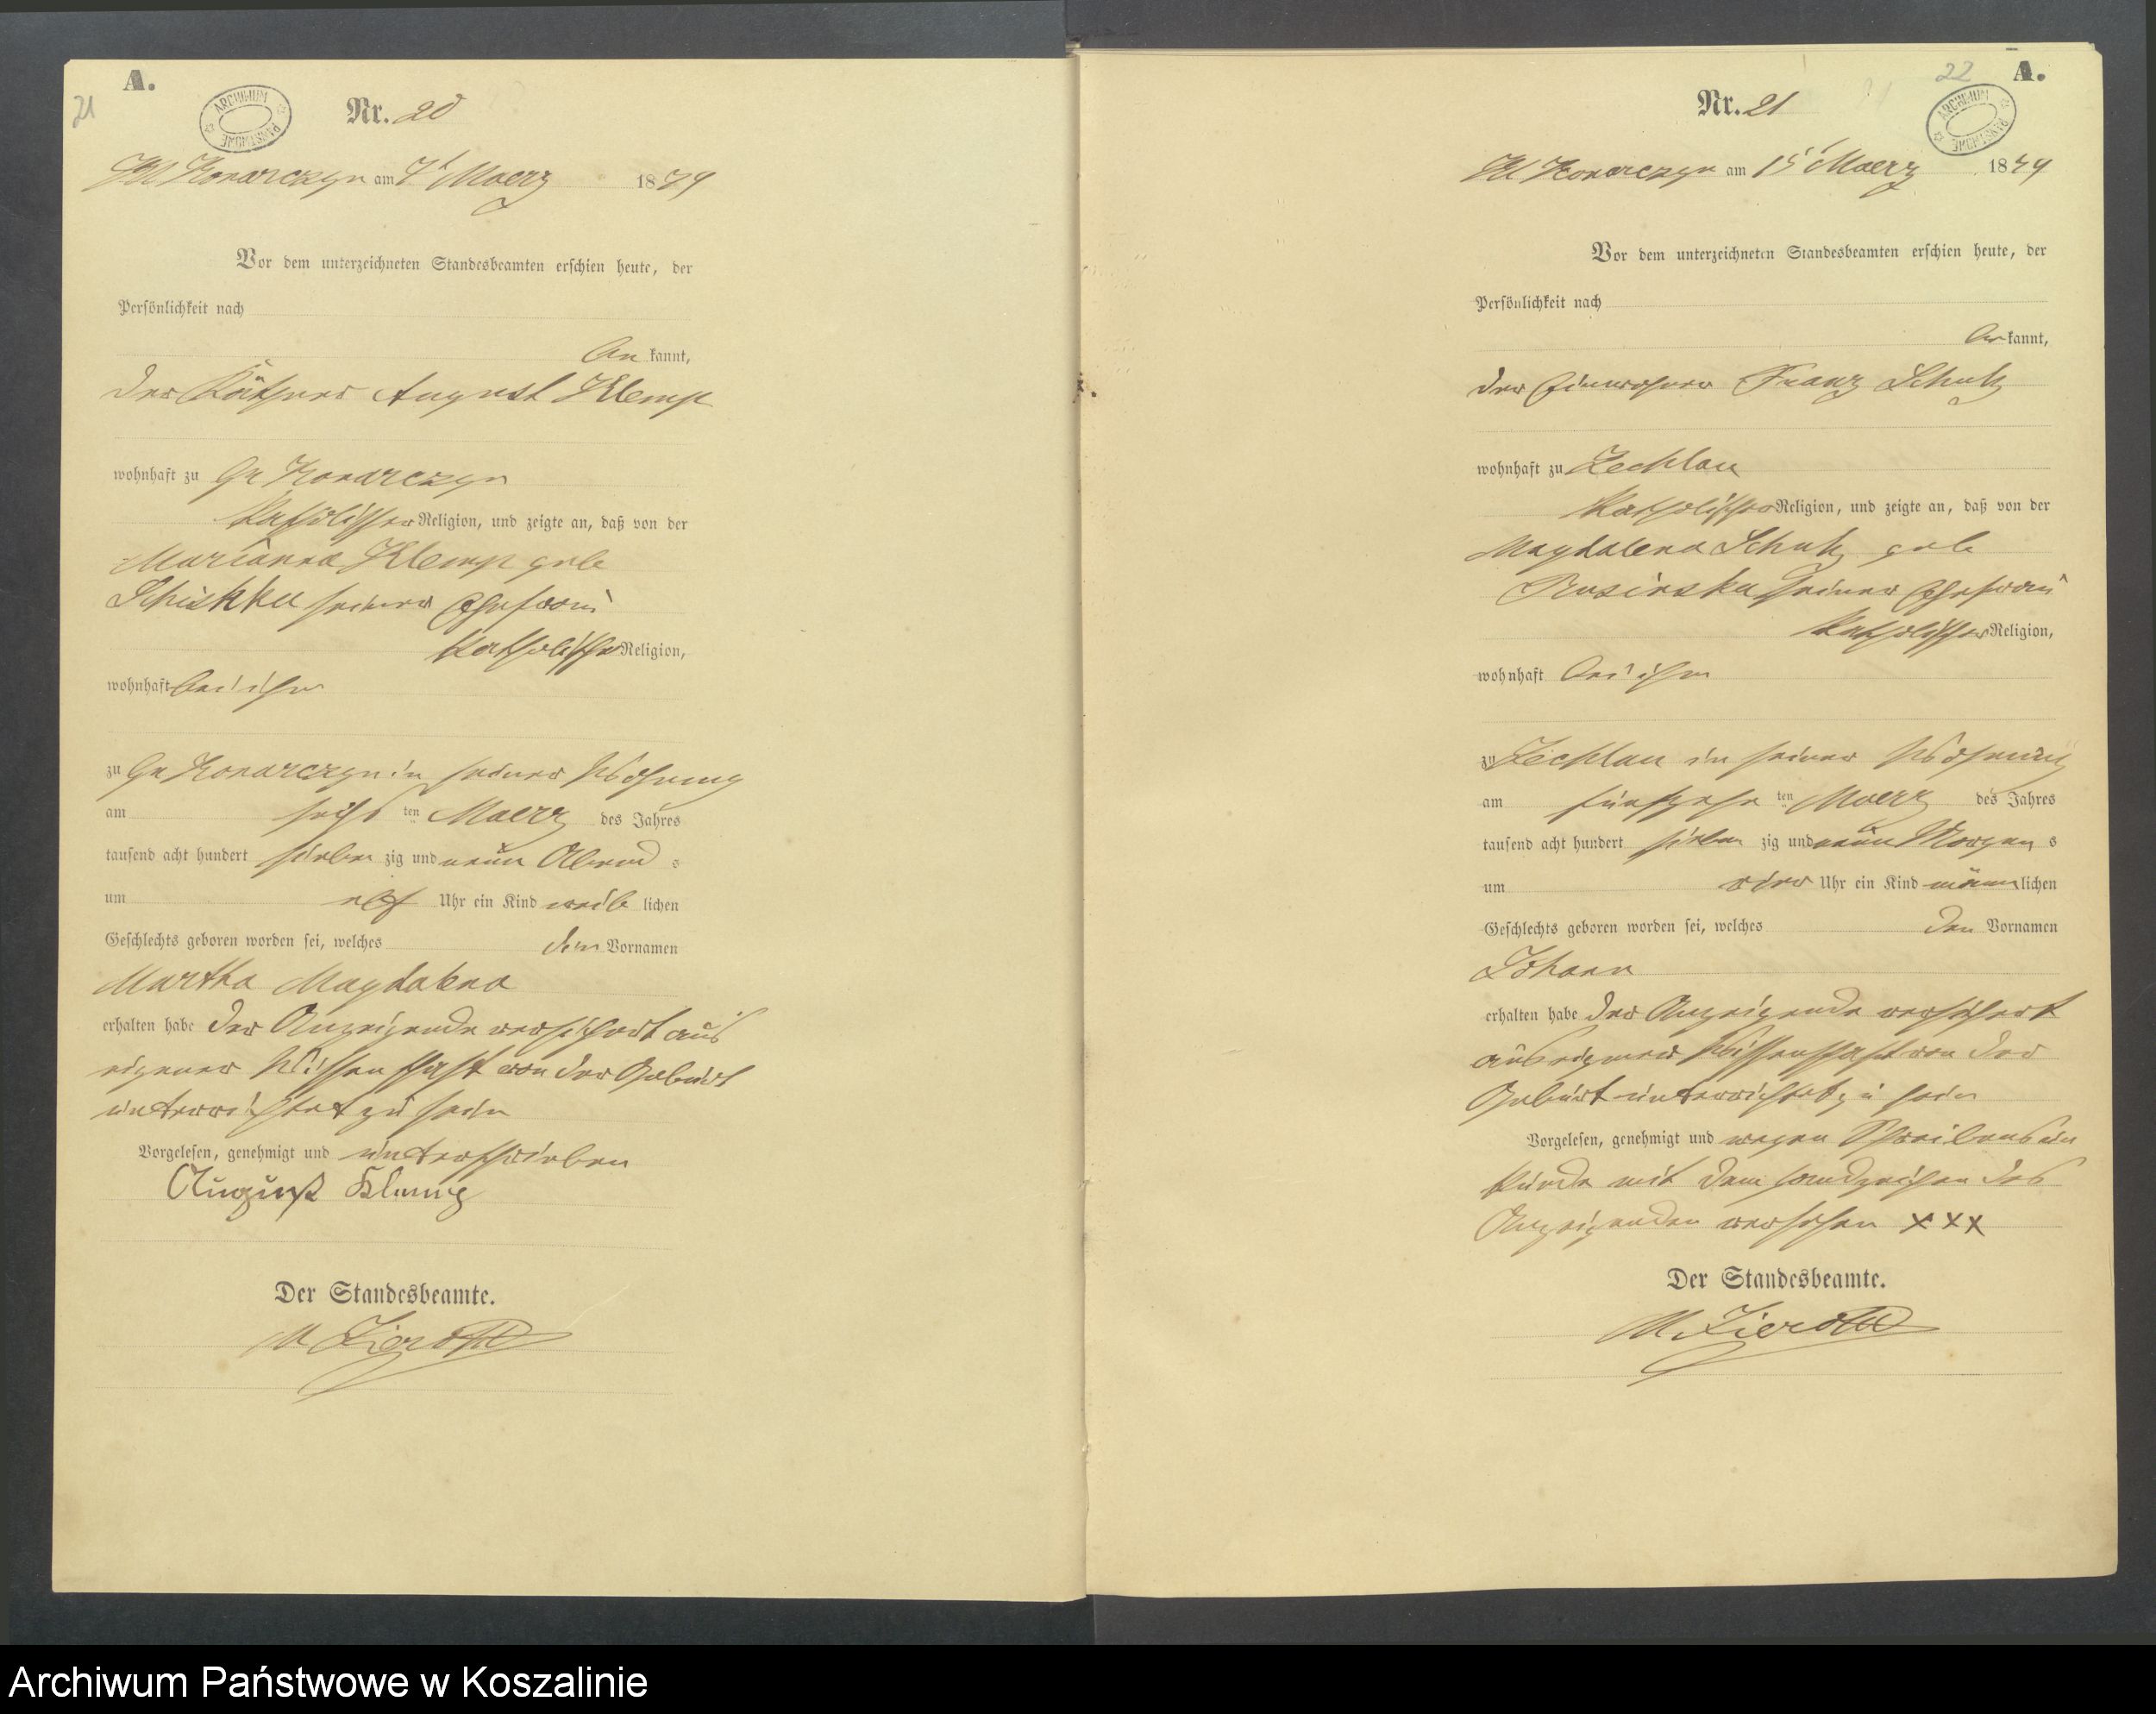 A.
21
ARCHIWUM PAŃSTWOWE
Nr. 20
Kl Konarczyn am 7t Maerz 1879
Vor dem unterzeichneten Standesbeamten erschien heute, der
Persönlichkeit nach
be kannt,
der Käthner August Klemp
wohnhaft zu Gr Konarczyn
katholischer Religion, und zeigte an, daß von der
Marianna Klemp geb
seiner Ehefrau
katholischer Religion,
wohnhaft bei ihm
zu Gr Konarczyn in seiner Wohnung
am sechs ten Maerz des Jahres
tausend acht hundert sieben zig und neun Abend s
um elf Uhr ein Kind weib lichen
Geschlechts geboren worden sei, welches den Vornamen
Martha Magdalena
erhalten habe der Anzeigende versichert aus
eigener Wissenschaft von der Geburt
unterrichtet zu sein
Vorgelesen, genehmigt und unterschrieben
August Klemp
Der Standesbeamte.
22
A.
ARCHIWUM PAŃSTWOWE
Nr. 21
Kl Konarczyn am 15t Maerz 1879
Vor dem unterzeichneten Standesbeamten erschien heute, der
Persönlichkeit nach
be kannt,
der Einwohner Franz Schulz
wohnhaft zu Zechlau
katholischer Religion, und zeigte an, daß von der
Magdalena Schulz geb
seiner Ehefrau
katholischer Religion,
wohnhaft bei ihm
zu Zechlau in seiner Wohnung
am fünfzehn ten Maerz des Jahres
tausend acht hundert sieben zig und neun Morgen s
um vier Uhr ein Kind männ lichen
Geschlechts geboren worden sei, welches den Vornamen
Johann
erhalten habe der Anzeigende versichert
aus eigener Wissenschaft von der
Geburt unterrichtet zu sein
Vorgelesen, genehmigt und wegen Schreibensun
kunde mit dem Handzeichen des
Anzeigenden versehen XXX
Der Standesbeamte.
Archiwum Państwowe w Koszalinie